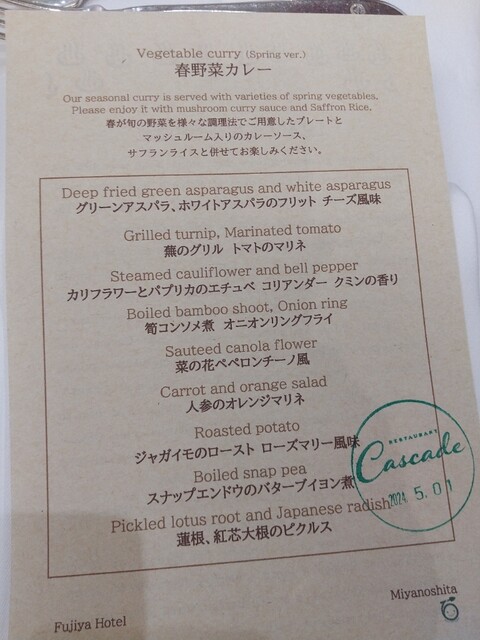 Vegetable curry (Spring ver.)
春野菜カレー
Our seasonal curry is served with varieties of spring vegetables.
Please enjoy it with mushroom curry sauce and Saffron Rice.
春が旬の野菜を様々な調理法でご用意したプレートと
マッシュルーム入りのカレーソース、
サフランライスと併せてお楽しみください。
Deep fried green asparagus and white asparagus
グリーンアスパラ、ホワイトアスパラのフリット チーズ風味
Grilled turnip, Marinated tomato
蕪のグリル トマトのマリネ
Steamed cauliflower and bell pepper
カリフラワーとパプリカのエチュベ コリアンダー クミンの香り
Boiled bamboo shoot, Onion ring
筍コンソメ煮 オニオンリングフライ
Sauteed canola flower
菜の花ペペロンチーノ風
Carrot and orange salad
人参のオレンジマリネ
Roasted potato
ジャガイモのロースト ローズマリー風味
Boiled snap pea
スナップエンドウのバターブイヨン煮
Pickled lotus root and Japanese radish
蓮根、紅芯大根のピクルス
RESTAURANT
Cascade
2024. 5. 01
Fujiya Hotel
Miyanoshita